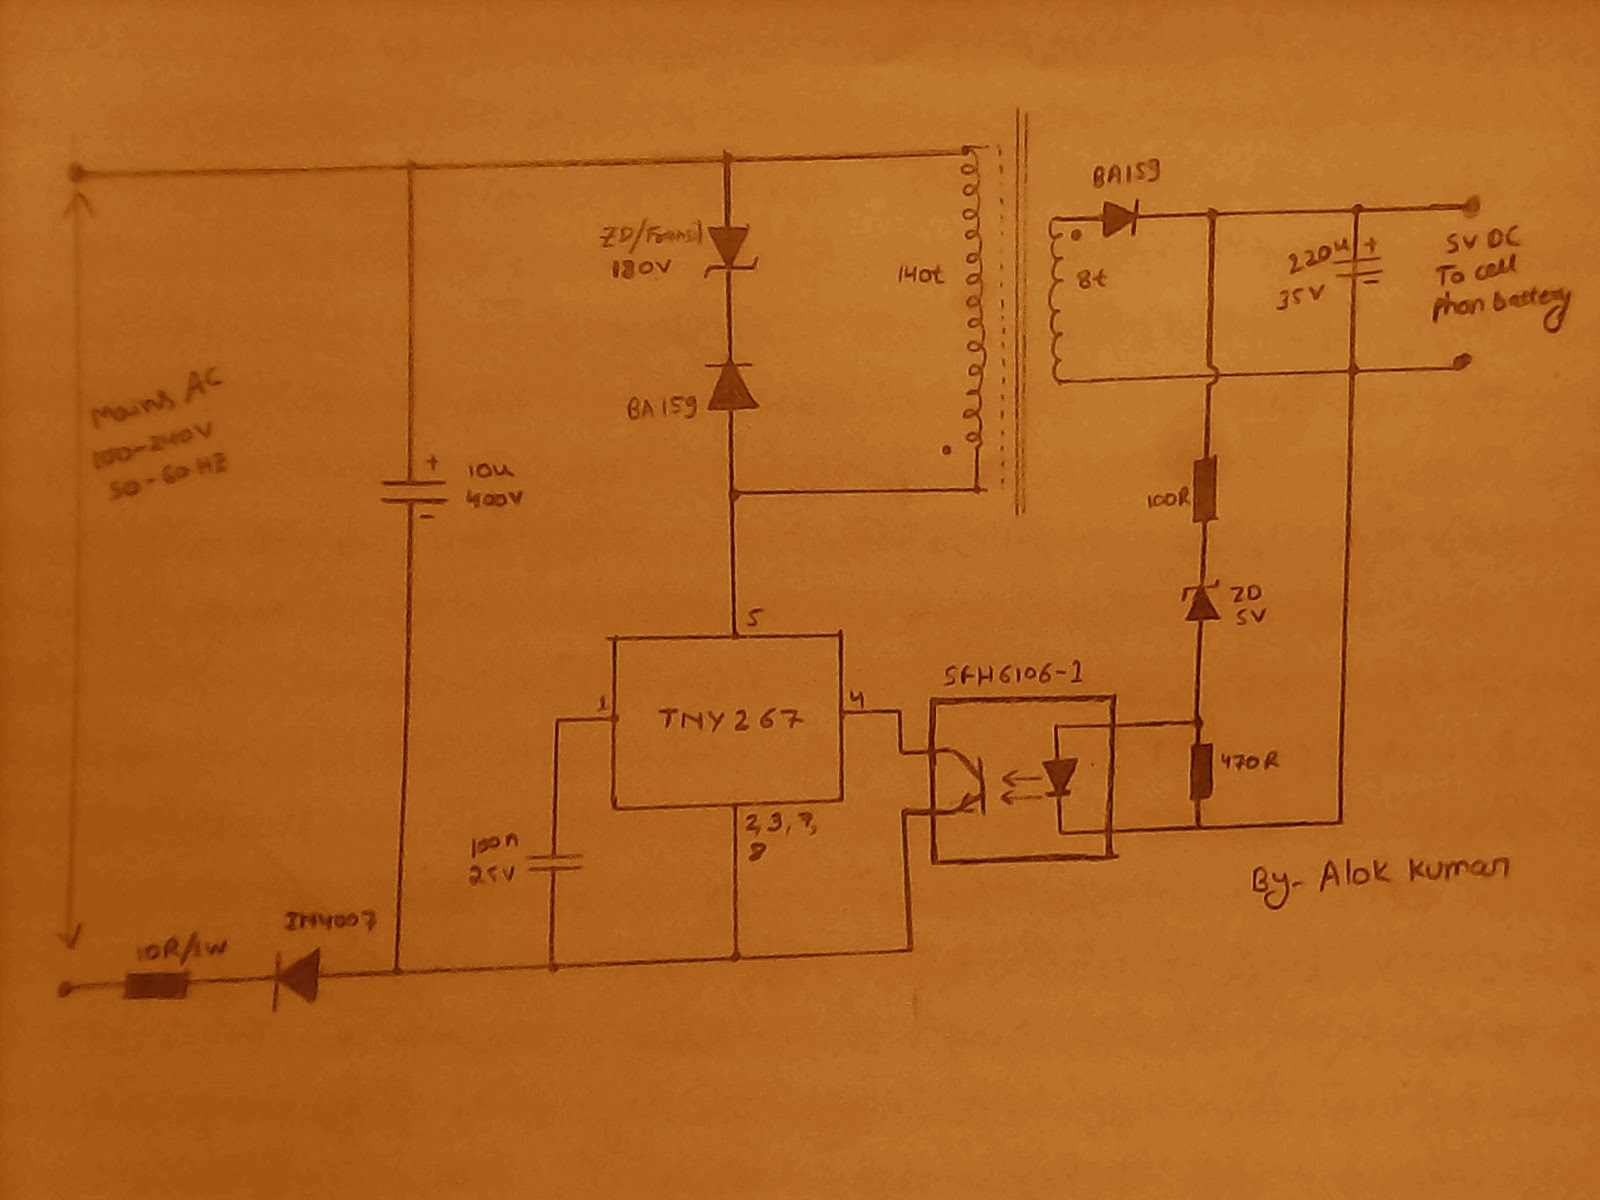 Mains AC
100-240V
50-60HZ
10R/1W
IN4007
+
10u
400V
-
ZD/Transil
180V
BA159
140t
8t
BA159
220u
35V
+
-
5V DC
To cell
phon battery
100R
ZD
5V
470R
SFH6106-1
5
1
TNY267
4
2,3,7,
8
100n
25V
By- Alok Kumar